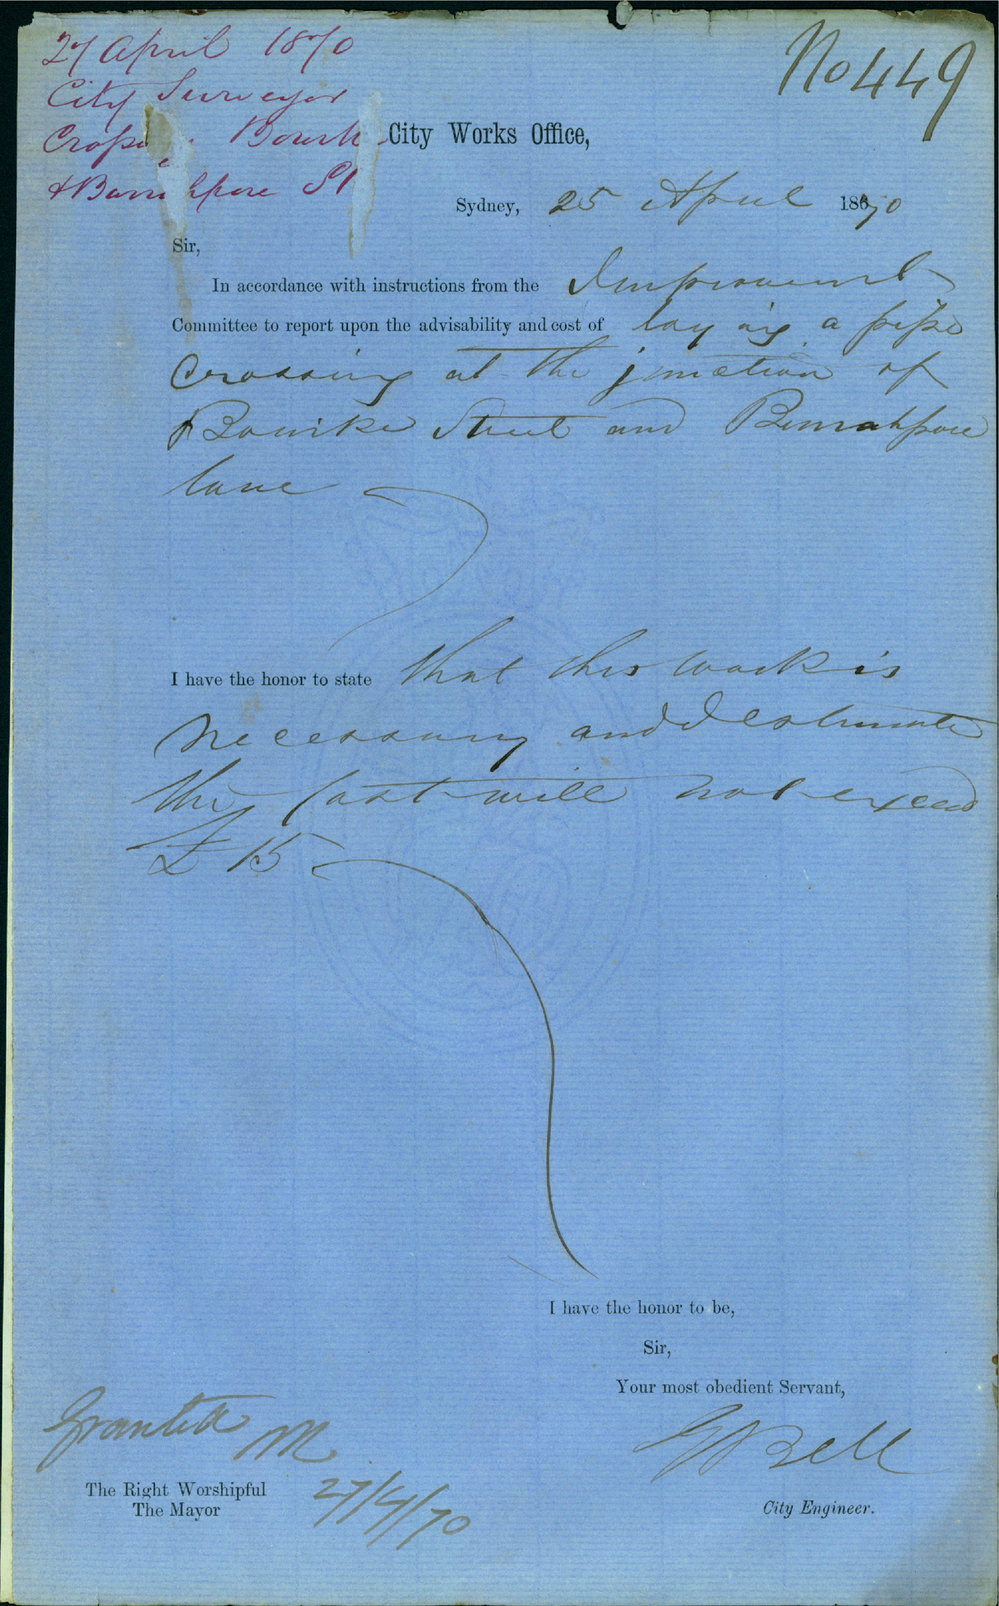 27 April 1870
City Surveyor
Crossing Bourke
& Burrahpore St
No 449
City Works Office,
Sydney, 25 April 1870
Sir,
In accordance with instructions from the Improvement
Committee to report upon the advisability and cost of laying a pipe
Crossing at the junction of
Bourke Street and Burrahpore
lane
I have the honor to state that this work is
necessary and I estimate
the cost will not exceed
£15
I have the honor to be,
Sir,
Your most obedient Servant,
Granted
M
EBell
The Right Worshipful
The Mayor
27/4/70
City Engineer.